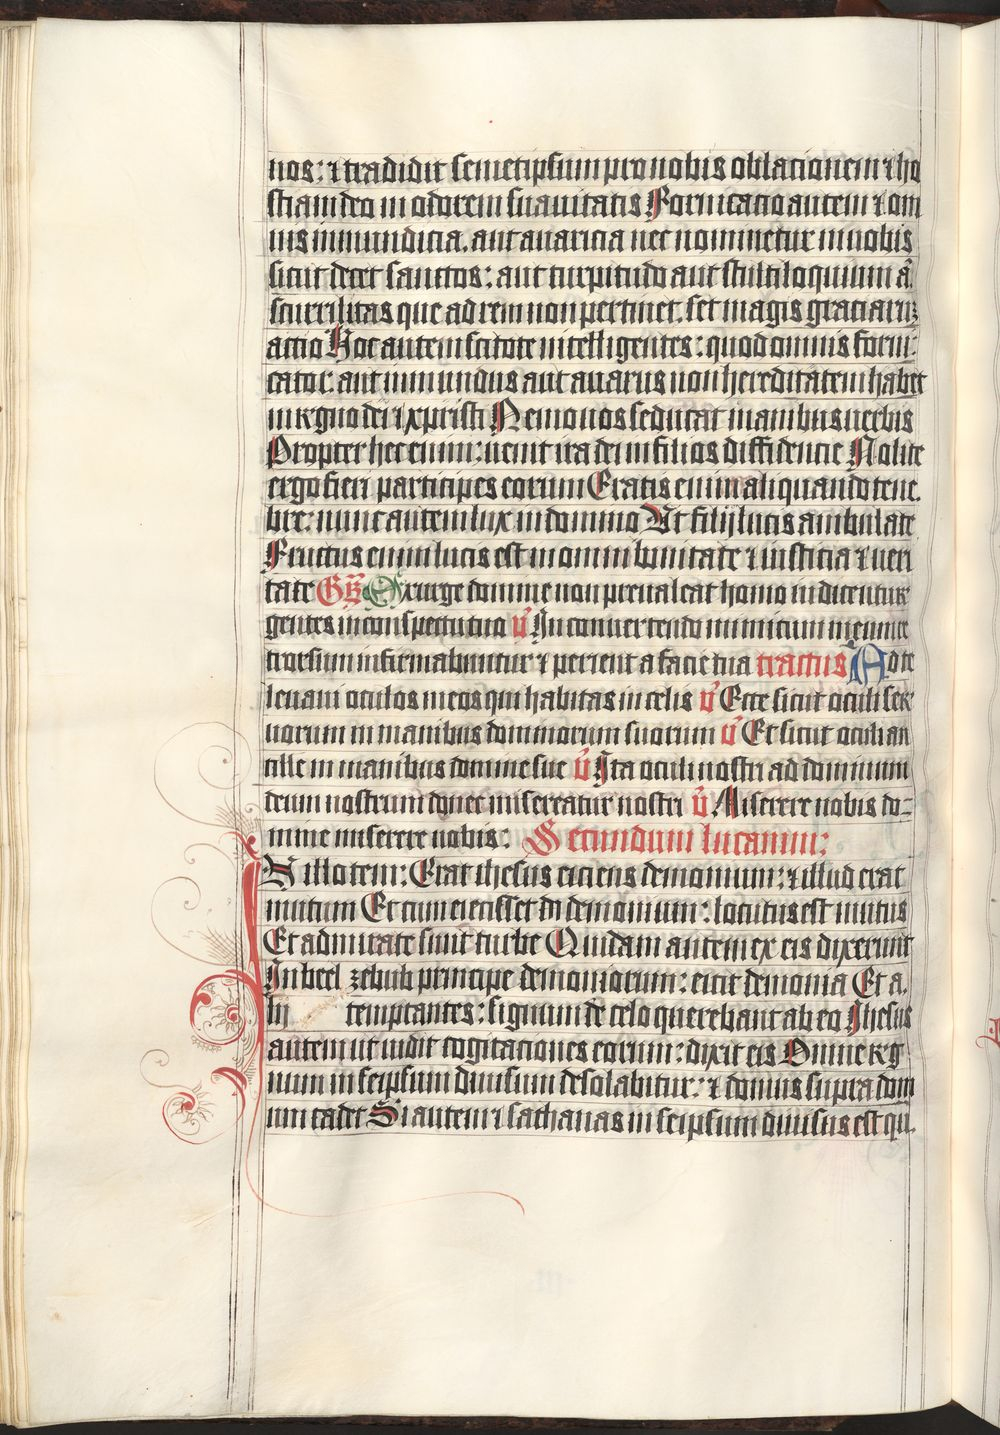 nos: ⁊ tradidit semetipsum pro nobis oblacionem ⁊ ho
stiam deo in odorem suauitatis Fornicacio autem ⁊ om
nis inmundicia. aut auaricia nec nominetur in uobis
sicut decet sanctos: aut turpitudo aut stultiloquium a̅
scurrilitas que ad rem non pertinet. set magis graciaruꝫ
actio Hoc autem scitote intelligentes: quod omnis forni:
cator. aut inmundus aut auarus non hereditatem habet
in regno dei ⁊ xpristi Nemo uos seducat inanibus uerbis
Propter hec enim: uenit ira dei in filios diffidencie Nolite
ergo fieri participes eorum Eratis enim aliquando tene.
bre: nunc autem lux in domino Ut filij lucis ambulate
Fructus enim lucis est in omni bonitate ⁊ iusticia ⁊ ueri
tate Gr̅ Exurge domine non preualeat homo iudicentur
gentes in conspectu tuo v̅ In conuertendo inimicum meum re
trorsum infirmabuntur ⁊ perient a facie tua tractus Ad te
leuaui oculos meos qui habitas in celis v̅ Ecce sicut oculi ser
uorum in manibus dominorum suorum v̅ Et sicut oculi an
cille in manibus domine sue v̅ Ita oculi nostri ad dominum
deum nostrum donec misereatur nostri v̅ Miserere nobis do-
mine miserere nobis: Secundum lucanum:
In illo tem: Erat ihesus eiciens demonium: ⁊ illud erat
mutum Et cum eiecisset di demonium: locutus est mutus
Et admirate sunt turbe Quidam autem ex eis dixerunt
In beel zebub principe demoniorum: eicit demonia Et a.
lij temptantes: signum de celo querebant ab eo Ihesus
autem ut uidit cogitaciones eorum: dixit eis Omne reg
num in seipsum diuisum desolabitur: ⁊ domus supra dom
um cadet Si autem ⁊ sathanas in seipsum diuisus est qu.